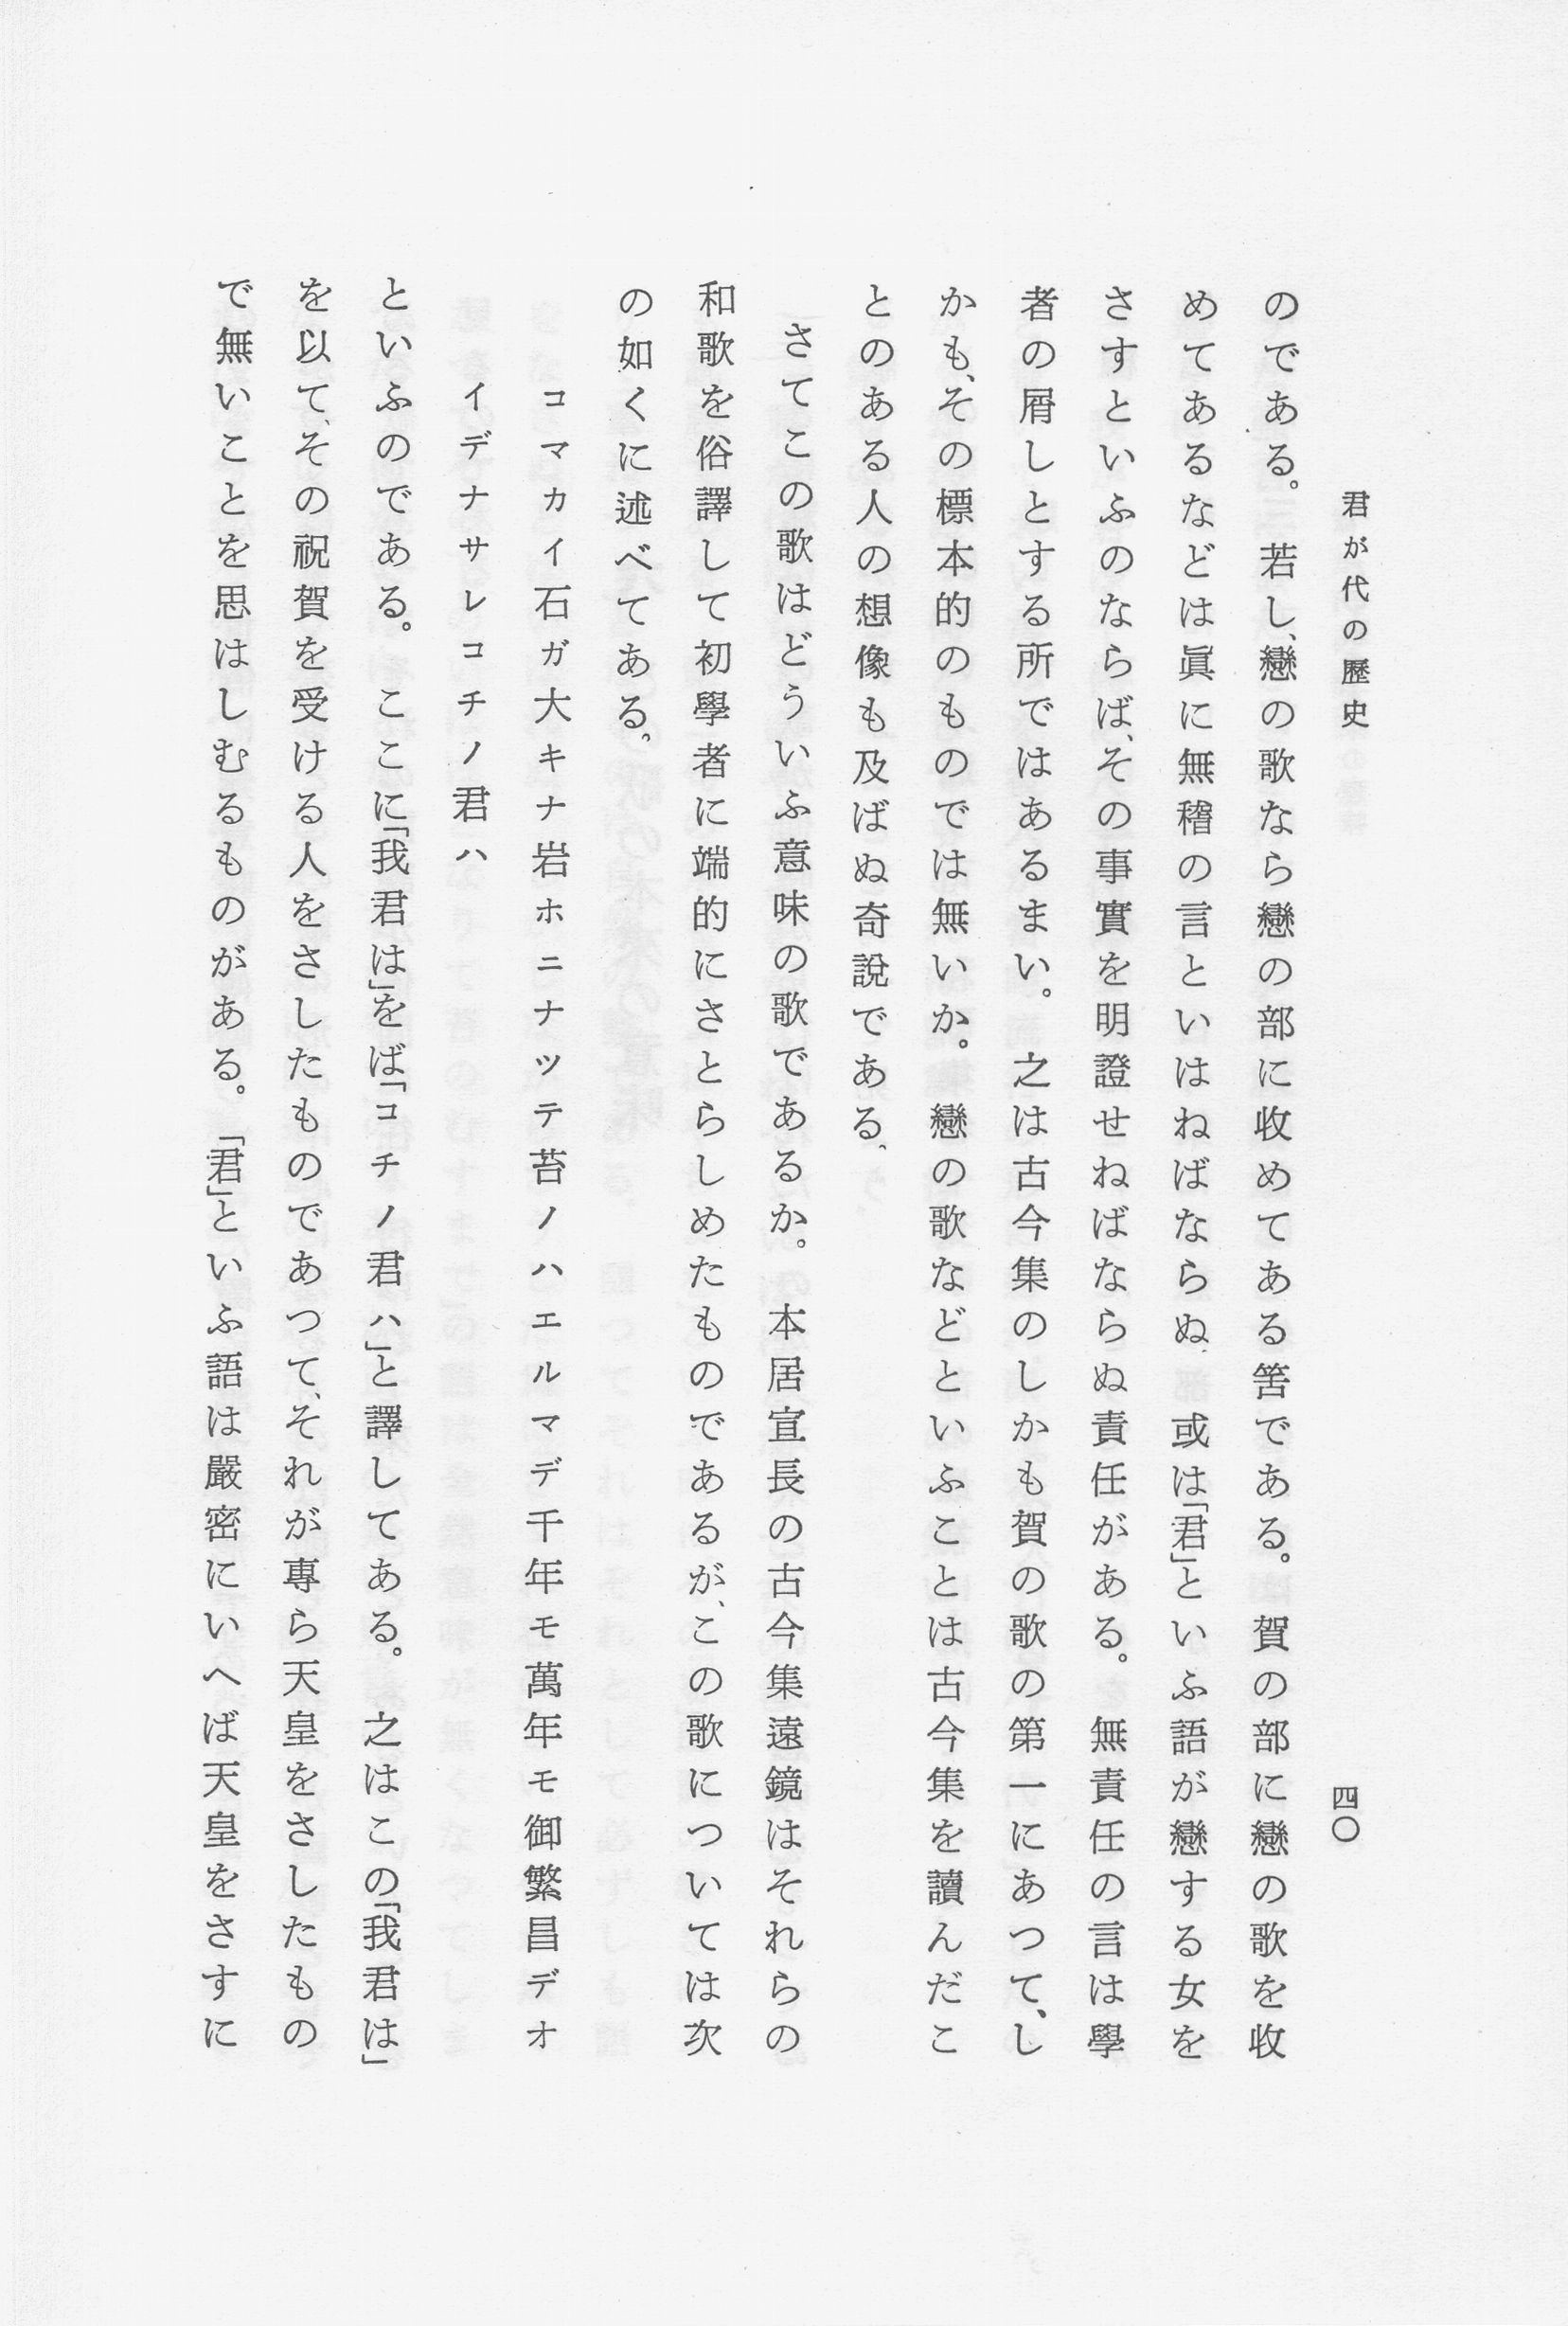 君が代の歷史
四〇
のである。 若し、戀の歌なら戀の部に收めてある筈である。 賀の部に戀の歌を收
めてあるなどは眞に無稽の言といはねばならぬ。 或は「君」といふ語が戀する女を
さすといふのならば、その事實を明證せねばならぬ責任がある。 無責任の言は學
者の屑しとする所ではあるまい。 之は古今集のしかも賀の歌の第一にあつて、し
かも、その標本的のものでは無いか。 戀の歌などといふことは古今集を讀んだこ
とのある人の想像も及ばぬ奇說である。
さてこの歌はどういふ意味の歌であるか。 本居宣長の古今集遠鏡はそれらの
和歌を俗譯して初學者に端的にさとらしめたものであるが、この歌については次
の如くに述べてある。
コマカイ石ガ大キナ岩ホニナツテ苔ノハエルマデ千年モ萬年モ御繁昌デオ
イデナサレコチノ君ハ
といふのである。 ここに「我君は」をば「コチノ君ハ」と譯してある。 之はこの「我君は」
を以て、その祝賀を受ける人をさしたものであつて、それが專ら天皇をさしたもの
で無いことを思はしむるものがある。 「君」といふ語は嚴密にいへば天皇をさすに